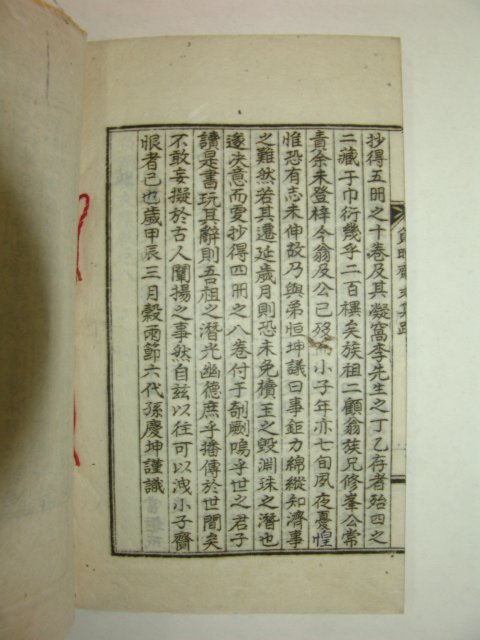 抄得五冊之十卷及其凝窩李先生之丁乙存者殆四之
二藏于巾衍幾乎二百禩矣族祖二顧翁族兄修峯公常
責余未登梓今翁及公已歿小子年亦七旬夙夜憂惶
惟恐有志未伸故乃與弟恒坤議曰事鉅力綿縱知濟事
之難然若其遷延歲月則恐未免櫝玉之毁淵珠之潛也
遂決意而更抄得四冊之八卷付于剞劂嗚乎世之君子
讀是書玩其辭則吾祖之潛光幽德庶乎播傳於世間矣
不敢妄擬於古人闡揚之事然自玆以往可以洩小子齎
恨者已也歲甲辰三月穀雨節六代孫慶坤謹識